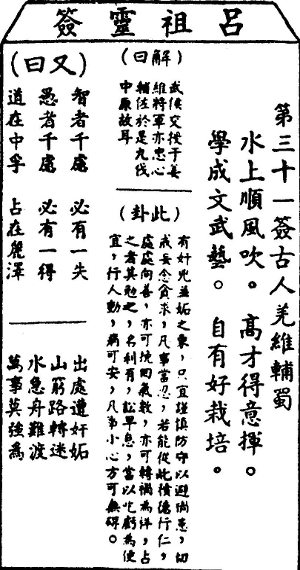 呂祖靈簽
第三十一簽古人羌維輔蜀
水上順風吹。高才得意揮。
學成文武藝。自有好栽培。
(解曰)
武侯交授于姜
維將軍亦忠心
輔佐於是九伐
中原故耳
(此卦)
有奸兇並妬之象,只宜謹慎防守以避備患,切
戒妄念貪求,凡事當忍,若能從此積德行仁,
處處向善,亦可挽回氣數,亦可轉禍為祥,占
之者其勉之,名利有,訟早息,當以吃虧為便
宜,行人動,病可安,凡事小心方可無碍。
(又曰)
智者千處 必有一失
愚者千處 必有一得
道在中孚 占在麗澤
出處遭奸妬
山窮路轉迷
水急舟難渡
萬事莫強為